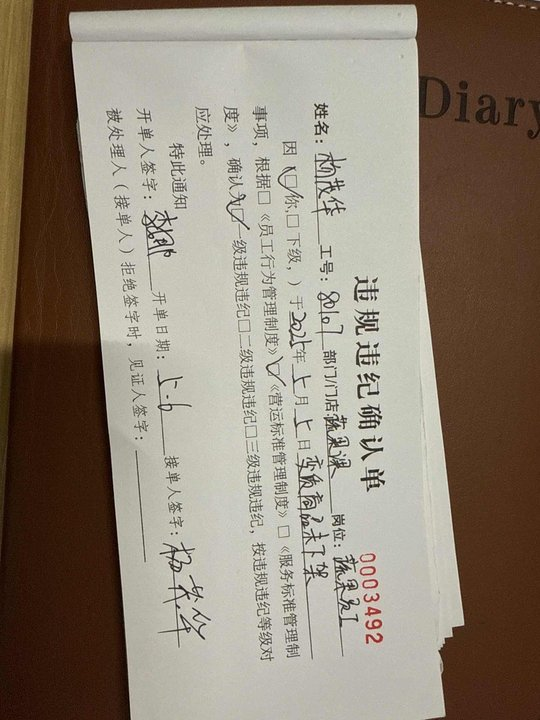 Diary
违规违纪确认单
0003492
姓名：杨茂华 工号：80107 部门/门店：蔬果课 岗位：蔬果员工
因（☑你，□下级，）于2025年5月5日变质商品未下架
事项，根据□《员工行为管理制度》☑《营运标准管理制度》□《服务标准管理制
度》，确认为☑一级违规违纪□二级违规违纪□三级违规违纪，按违规违纪等级对
应处理。
特此通知
开单人签字： 开单日期：5-6 接单人签字：杨茂华
被处理人（接单人）拒绝签字时，见证人签字：